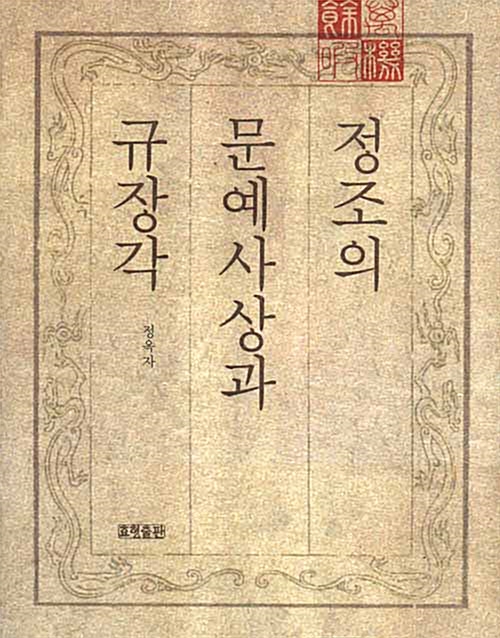 萬機
餘暇
정조의
문예사상과
규장각
정옥자
효형출판